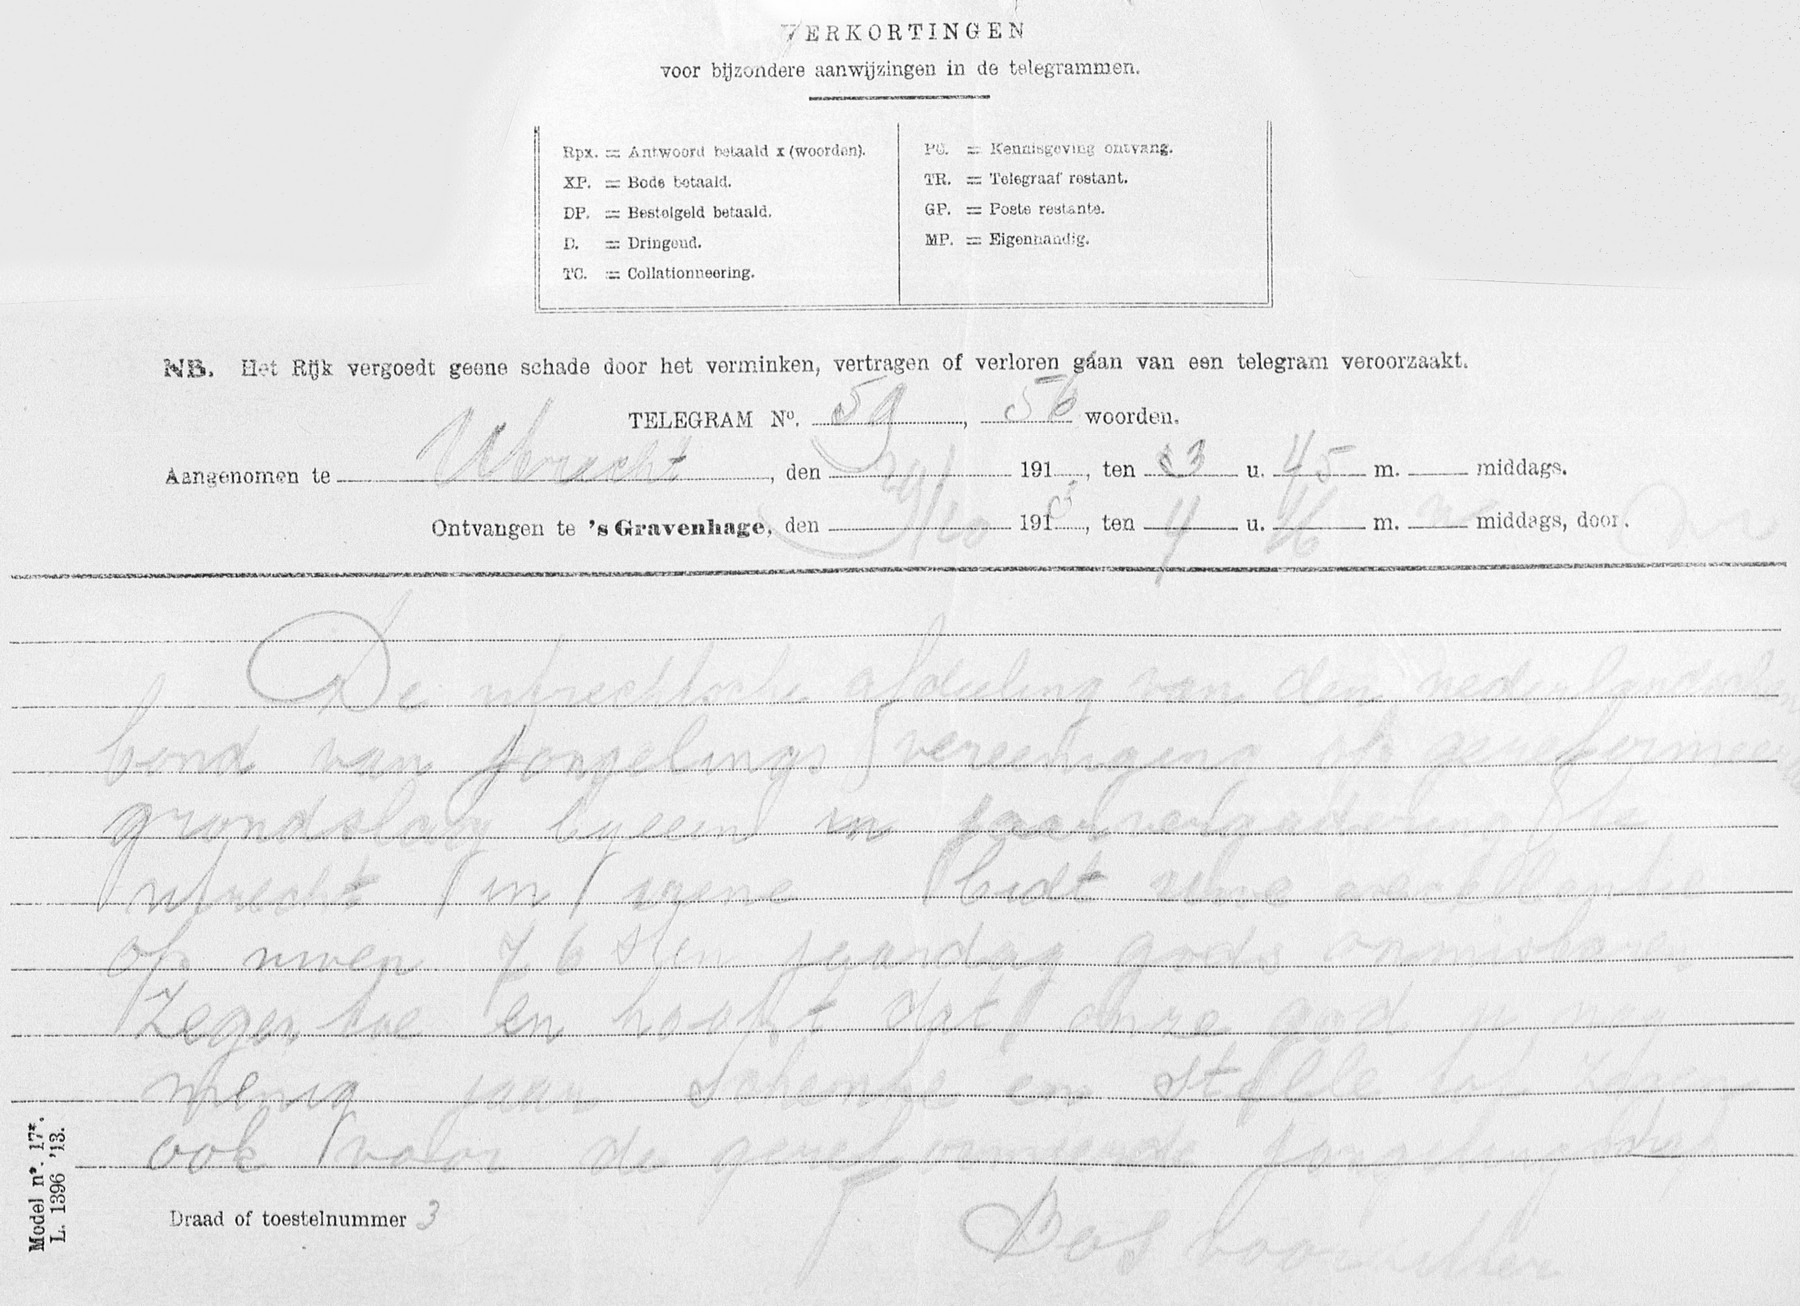 VERKORTINGEN
voor bijzondere aanwijzingen in de telegrammen.
Rpx. = Antwoord betaald x (woorden).
XP. = Bode betaald.
DP. = Bestelgeld betaald.
D. = Dringend.
TC. = Collationneering.
PC. = Kennisgeving ontvang.
TR. = Telegraaf restant.
GP. = Poste restante.
MP. = Eigenhandig.
NB. Het Rijk vergoedt geene schade door het verminken, vertragen of verloren gaan van een telegram veroorzaakt.
TELEGRAM No. 59, 56 woorden.
Aangenomen te Utrecht, den 191 , ten 3 u. 45 m. middags.
Ontvangen te 's Gravenhage, den 29/10 191 , ten 4 u. 16 m. middags, door.
De utrechtsche afdeeling van den nederlandschen
bond van jongelings vereeniging op gereformeerde
grondslag byeen in jaarvergadering te
utrecht in bidt uwe excellentie
op uwen 76 sten jaardag gods onmisbaren
Zegen toe en hoopt dat onze god u nog
menig jaar schenke en stelle tot zegen
ook voor de gereformeerde jongelingschap
Bos voorzitter
Draad of toestelnummer 3
Model no. 17*.
L. 1396 '13.